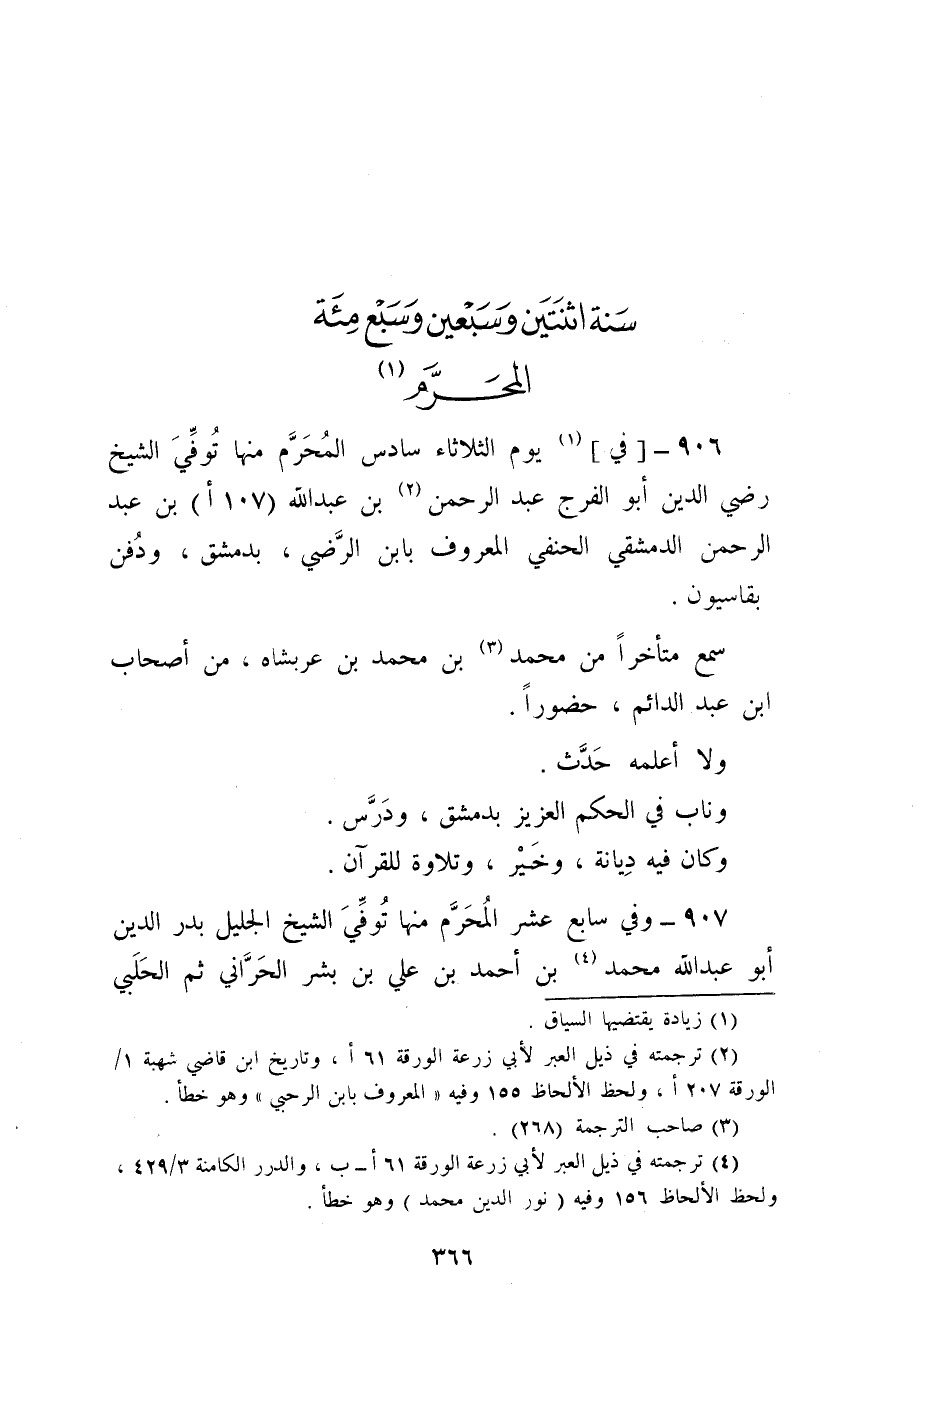 سَنة اثنَتَين وَسَبْعين وَسَبْع مِئَة
المحَرَّم (١)
٩٠٦ ـ [ في ] (١) يوم الثلاثاء سادس المُحَرَّم منها تُوفِّيَ الشيخ
رضي الدين أبو الفرج عبد الرحمن (٢) بن عبدالله (١٠٧ أ ) بن عبد
الرحمن الدمشقي الحنفي المعروف بابن الرَّضي ، بدمشق ، ودُفن
بقاسيون .
سمع متأخراً من محمد (٣) بن محمد بن عربشاه ، من أصحاب
ابن عبد الدائم ، حضوراً .
ولا أعلمه حَدَّث .
وناب في الحكم العزيز بدمشق ، ودَرَّس .
وكان فيه دِيانة ، وخَيْر ، وتلاوة للقرآن .
٩٠٧ ـ وفي سابع عشر المُحَرَّم منها تُوفِّيَ الشيخ الجليل بدر الدين
أبو عبدالله محمد (٤) بن أحمد بن علي بن بشر الحَرَّاني ثم الحَلَبي
(١) زيادة يقتضيها السياق .
(٢) ترجمته في ذيل العبر لأبي زرعة الورقة ٦١ أ ، وتاريخ ابن قاضي شهبة ١/
الورقة ٢٠٧ أ ، ولحظ الألحاظ ١٥٥ وفيه « المعروف بابن الرحبي » وهو خطأ .
(٣) صاحب الترجمة (٢٦٨) .
(٤) ترجمته في ذيل العبر لأبي زرعة الورقة ٦١ أ ـ ب ، والدرر الكامنة ٤٢٩/٣ ،
ولحظ الألحاظ ١٥٦ وفيه ( نور الدين محمد ) وهو خطأ .
٣٦٦